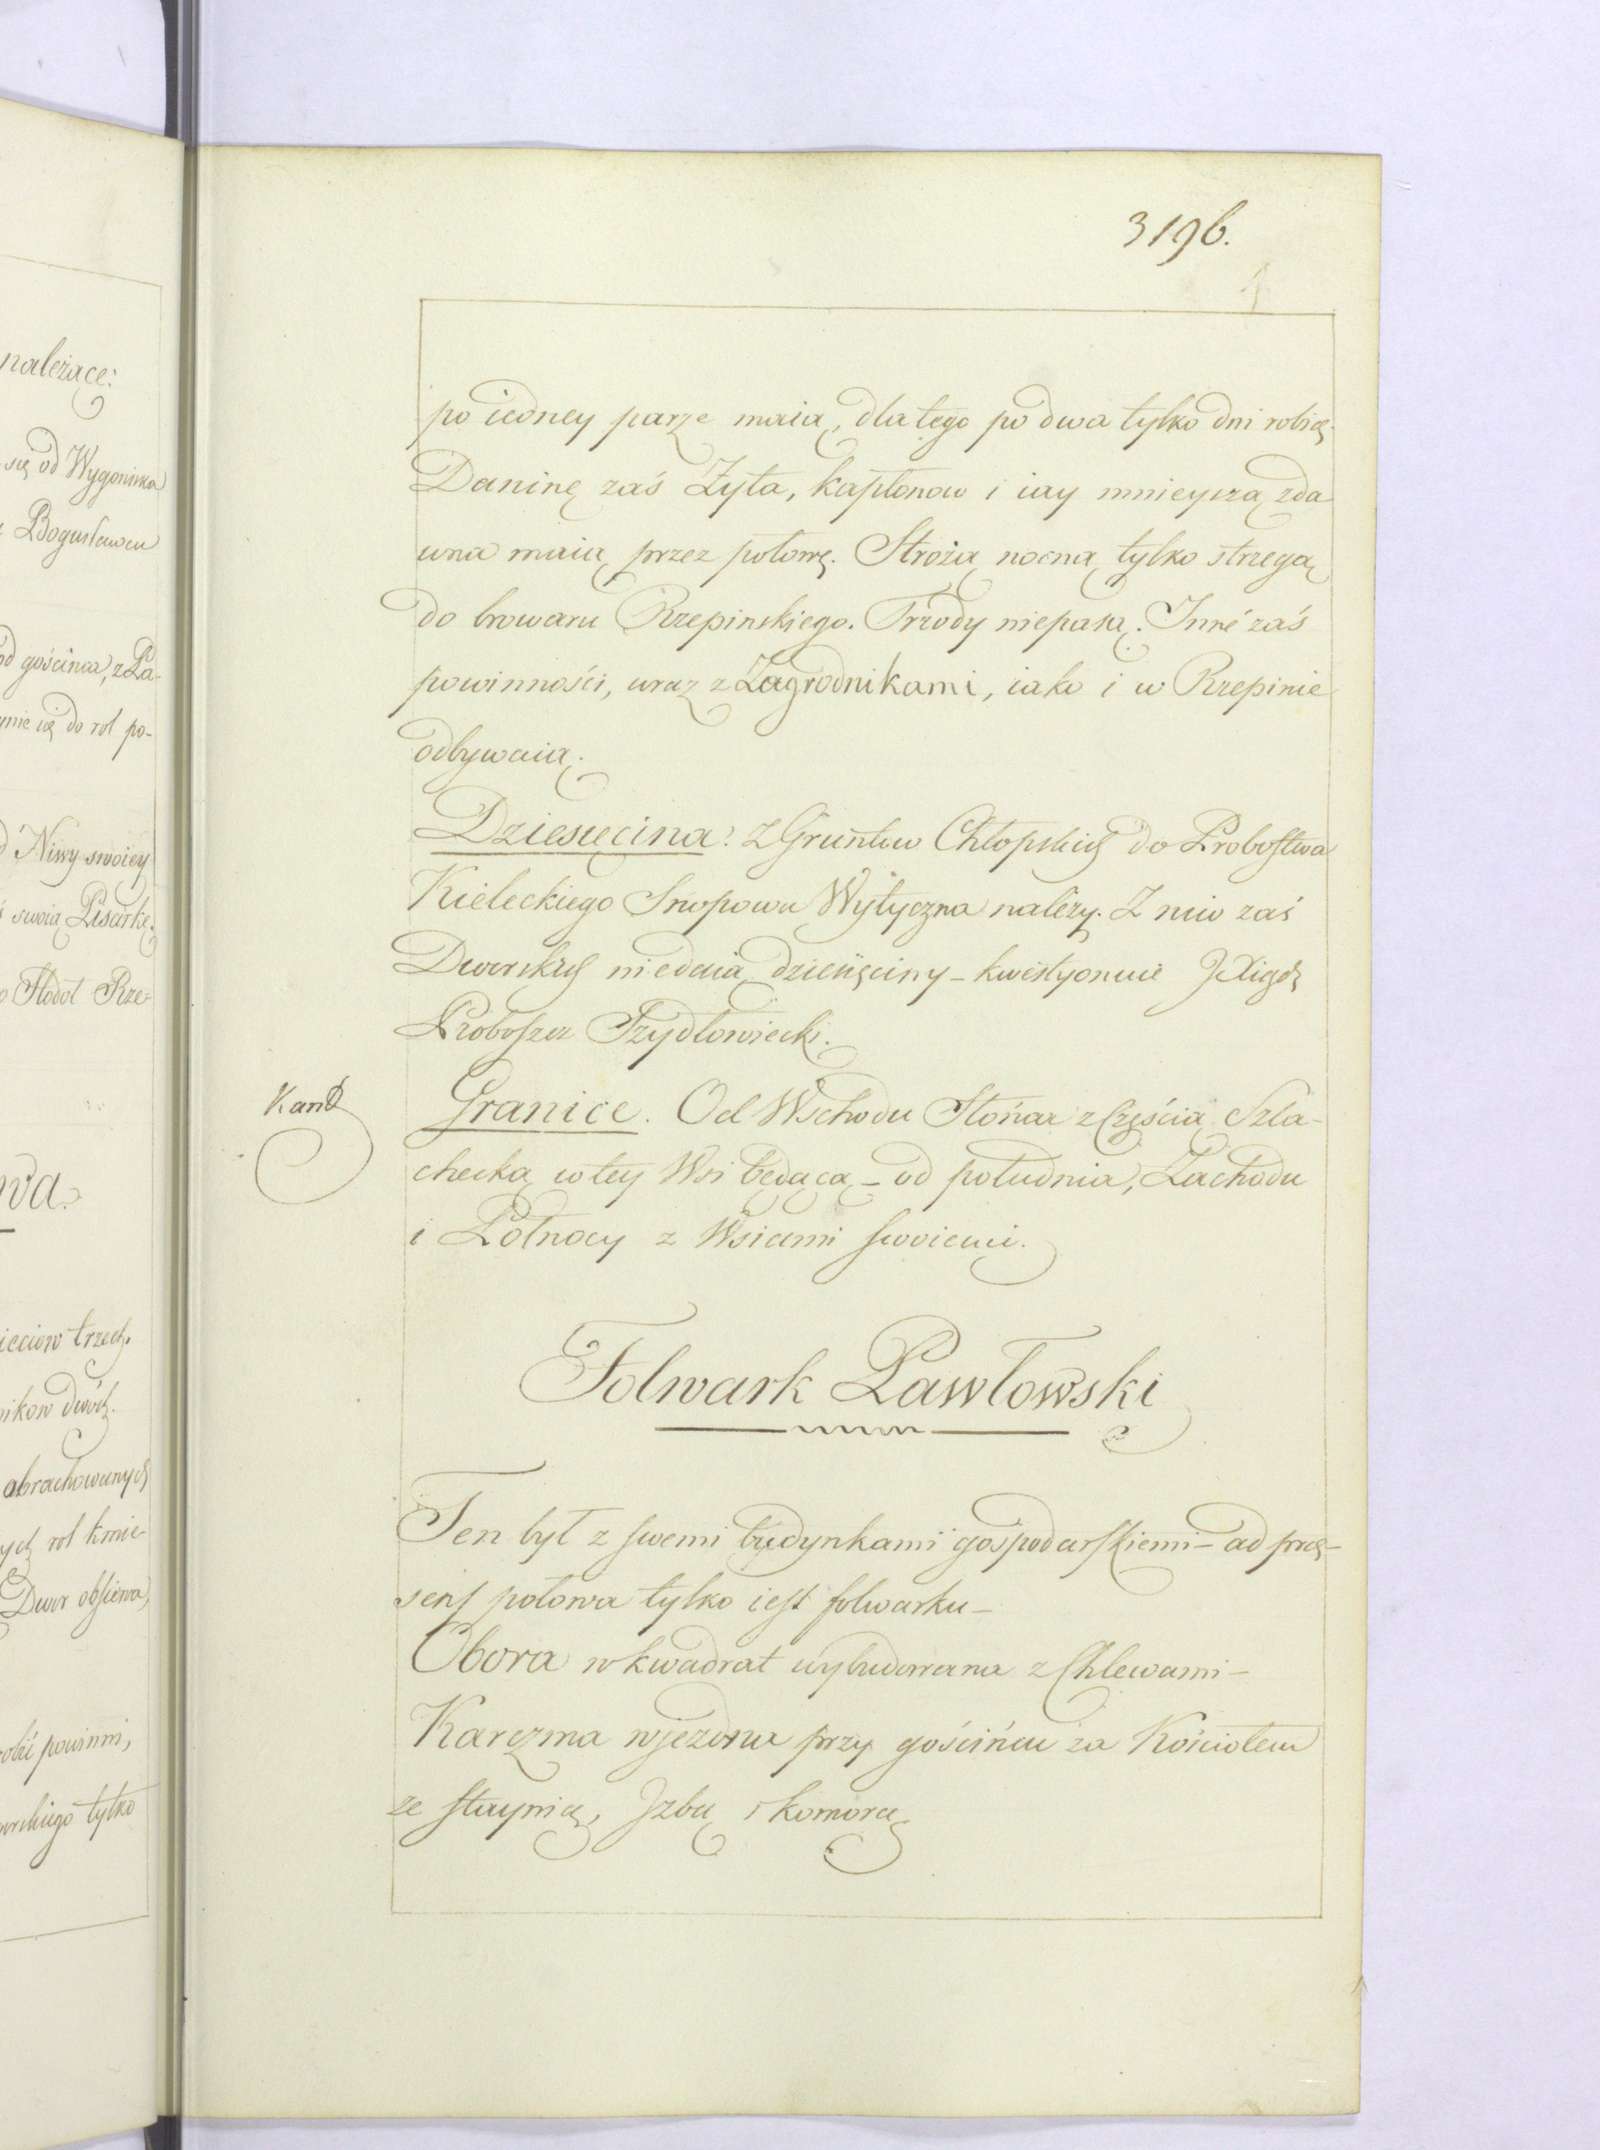 należące:
się od Wygoniska
Bogusławem
od gościńca, z Pa-
do rol po-
Niwy swoiey
swoią Pisarkę.
Rze-
wa.
trzech.
ników dwóch.
obrachowanych
rol kmie-
Dwor obsiewa,
powinni,
tylko
3196.
po iedney parze maią, dla tego po dwa tylko dni robią.
Daninę zaś Żyta, kapłonow i iay mnieyszą zda
wna maią przez połowę. Strożą nocną tylko strzegą
do browaru Rzepinskiego. Trzody niepasą. Inne zaś
powinności, wraz z Zagrodnikami, iako i w Rzepinie
odbywaią.
Dziesięcina: Z Gruntow Chłopskich do Probostwa
Kieleckiego Snopowa Wytyczna należy. Z niw zaś
Dworskich niedaią dziesięciny - kwestyonuie JXiądz
Proboszcz Szydłowiecki.
Kand
Granice. Od Wschodu Słońca z Częścią Szla-
checką w tey Wsi będącą - od południa, Zachodu
i Połnocy z Wsiami swoiemi.
Folwark Pawłowski
Ten był z swemi budynkami gospodarskiemi - ad præ-
sens połowa tylko iest folwarku -
Obora w kwadrat wybudowana z Chlewami -
Karczma wjezdna przy gościńcu za Kościołem
ze staynią, Jzbą i komorą